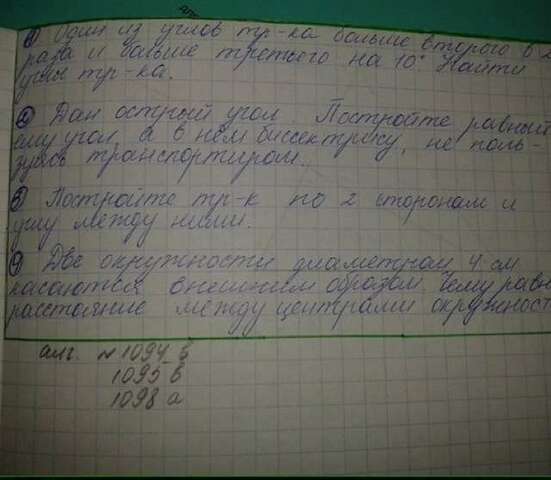 ① Один из углов тр-ка больше второго в 2
раза и больше третьего на 10° Найти
углы тр-ка.
② Дан острый угол. Постройте равный
ему угол, а в нём биссектрису, не поль-
зуясь транспортиром.
③ Постройте тр-к по 2 сторонам и
углу между ними.
④ Две окружности диаметром 4 см
касаются внешним образом. Чему равн
расстояние между центрами окружност
алг. №1094 б
1095 в
1098 а